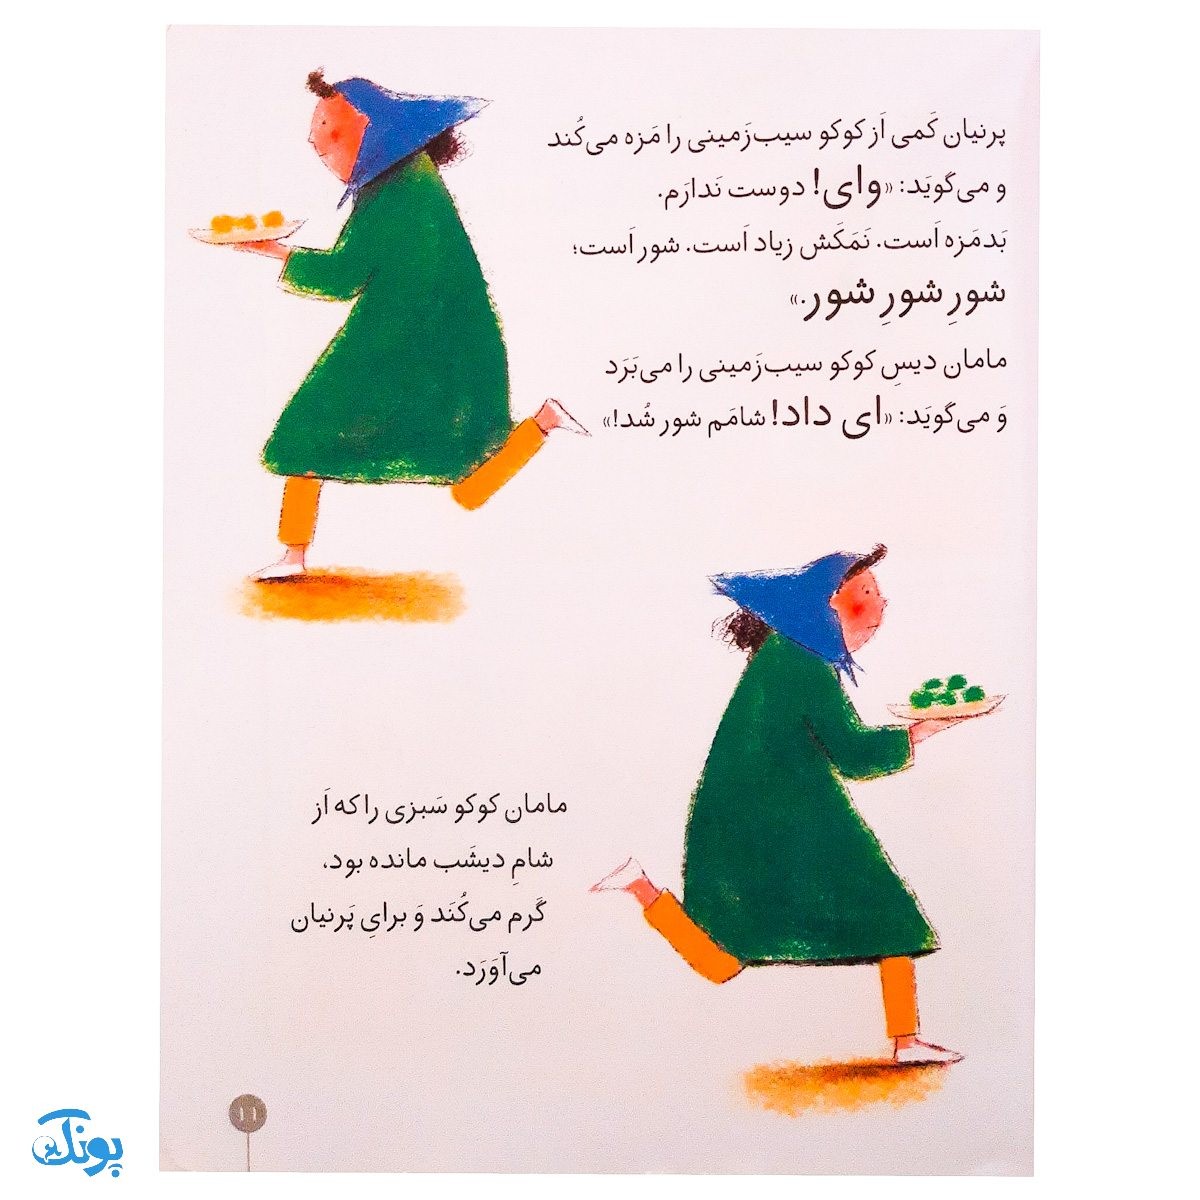 پرنیان کَمی اَز کوکو سیب‌زَمینی را مَزه می‌کُند
و می‌گویَد: «وای! دوست نَدارَم.
بَدمَزه اَست. نَمَکَش زیاد اَست. شور اَست؛
شورِ شورِ شور.»
مامان دیسِ کوکو سیب‌زَمینی را می‌بَرَد
وَ می‌گویَد: «ای داد! شامَم شور شُد!»
مامان کوکو سَبزی را که اَز
شامِ دیشَب مانده بود،
گَرم می‌کُنَد وَ برایِ پَرنیان
می‌آوَرَد.
۱۱
پونک